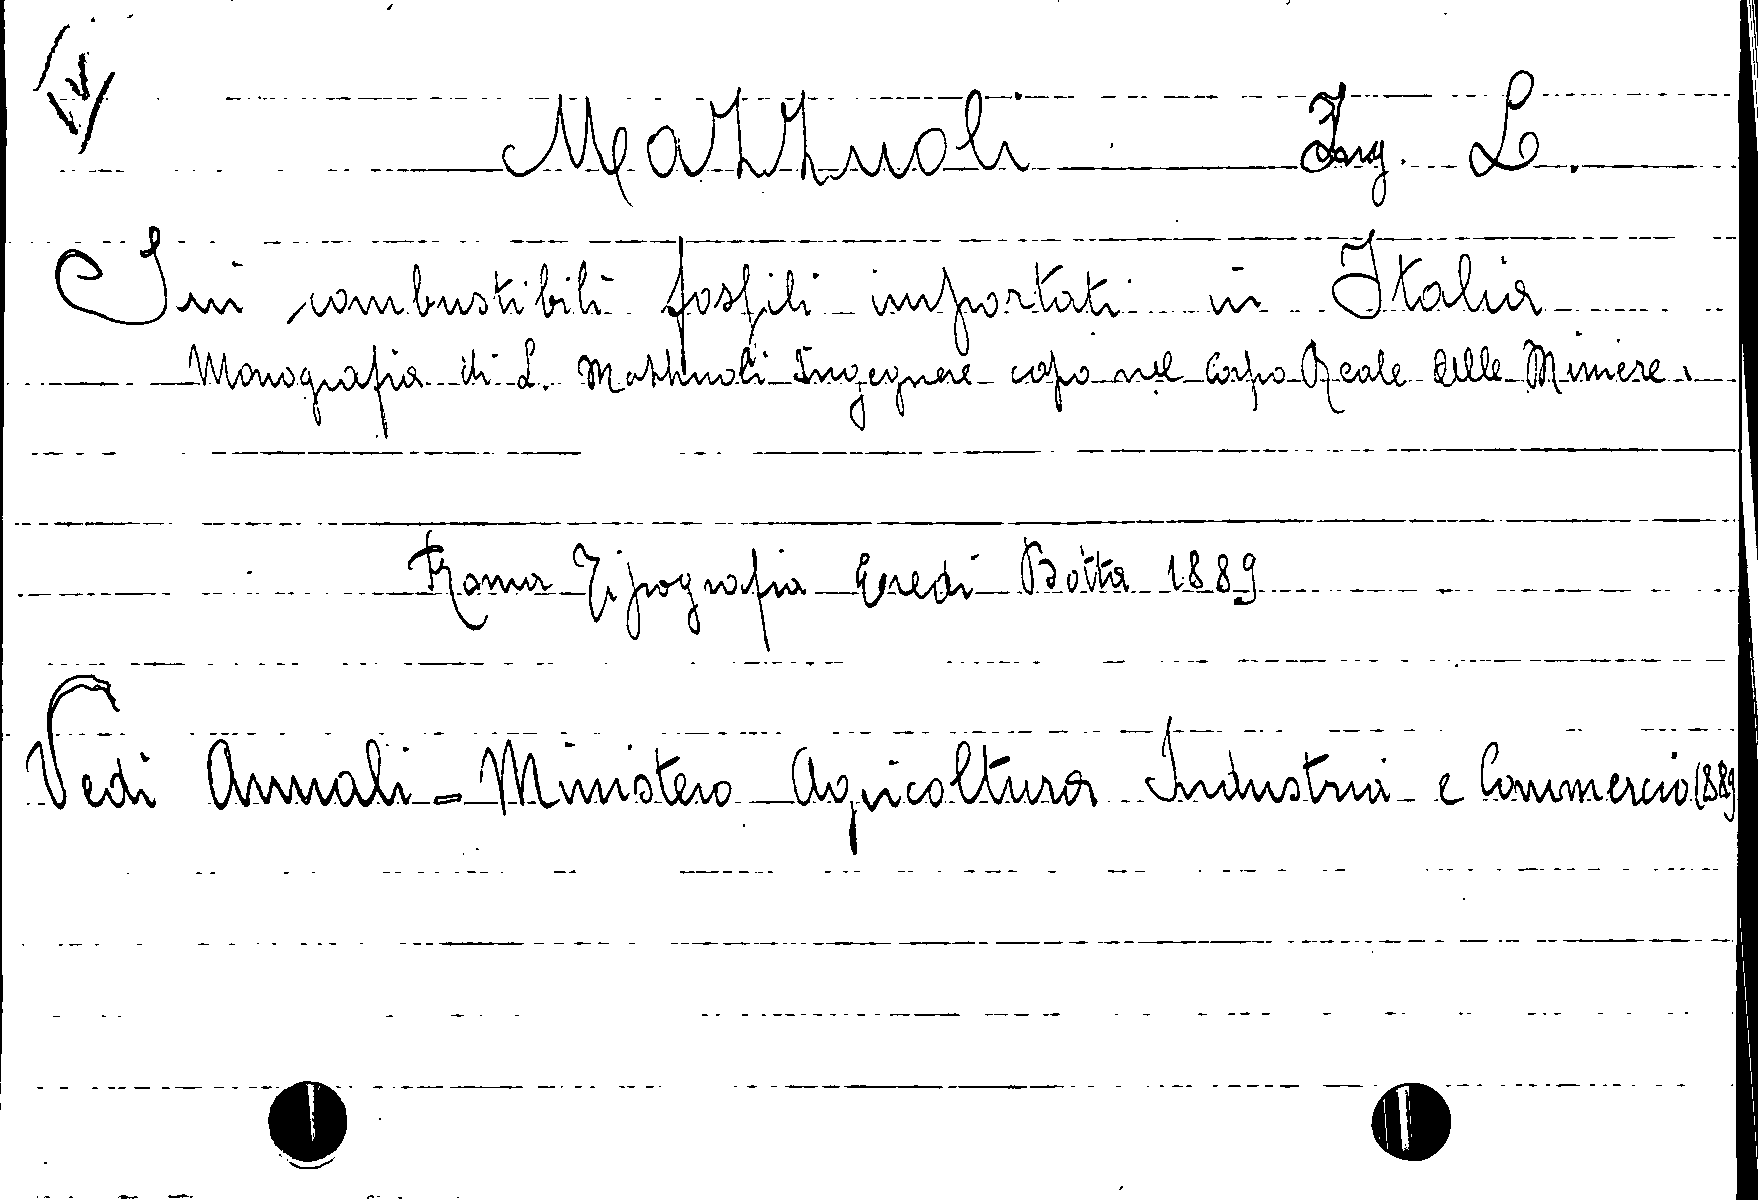 IV
Mazzuoli Ing. L.
Sui combustibili fossili importati in Italia
Monografia di L. Mazzuoli Ingegnere capo nel Corpo Reale delle Miniere.
Roma Tipografia Eredi Botta 1889
Vedi Annali - Ministero Agricoltura Industria e Commercio 1889